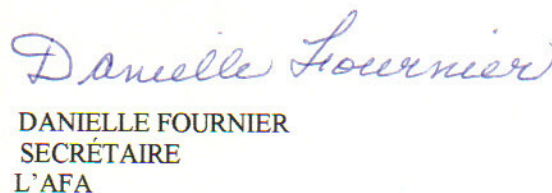 Danielle Fournier
DANIELLE FOURNIER
SECRÉTAIRE
L'AFA